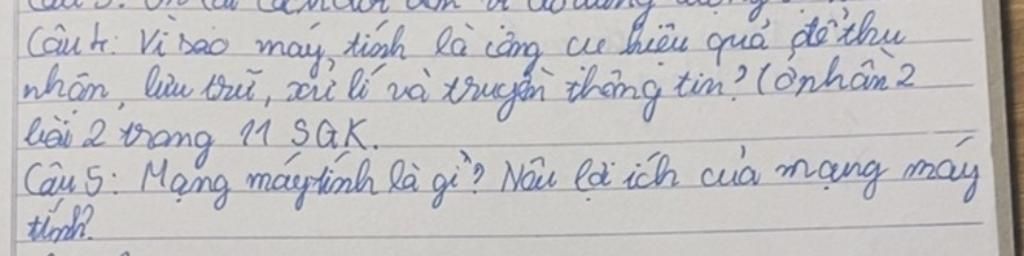 Câu 4: Vì sao máy tính là công cụ hiệu quả để thu
nhận, lưu trữ, xử lí và truyền thông tin? (ở phần 2
bài 2 trang 11 SGK.
Câu 5: Mạng máy tính là gì? Nêu lợi ích của mạng máy
tính?